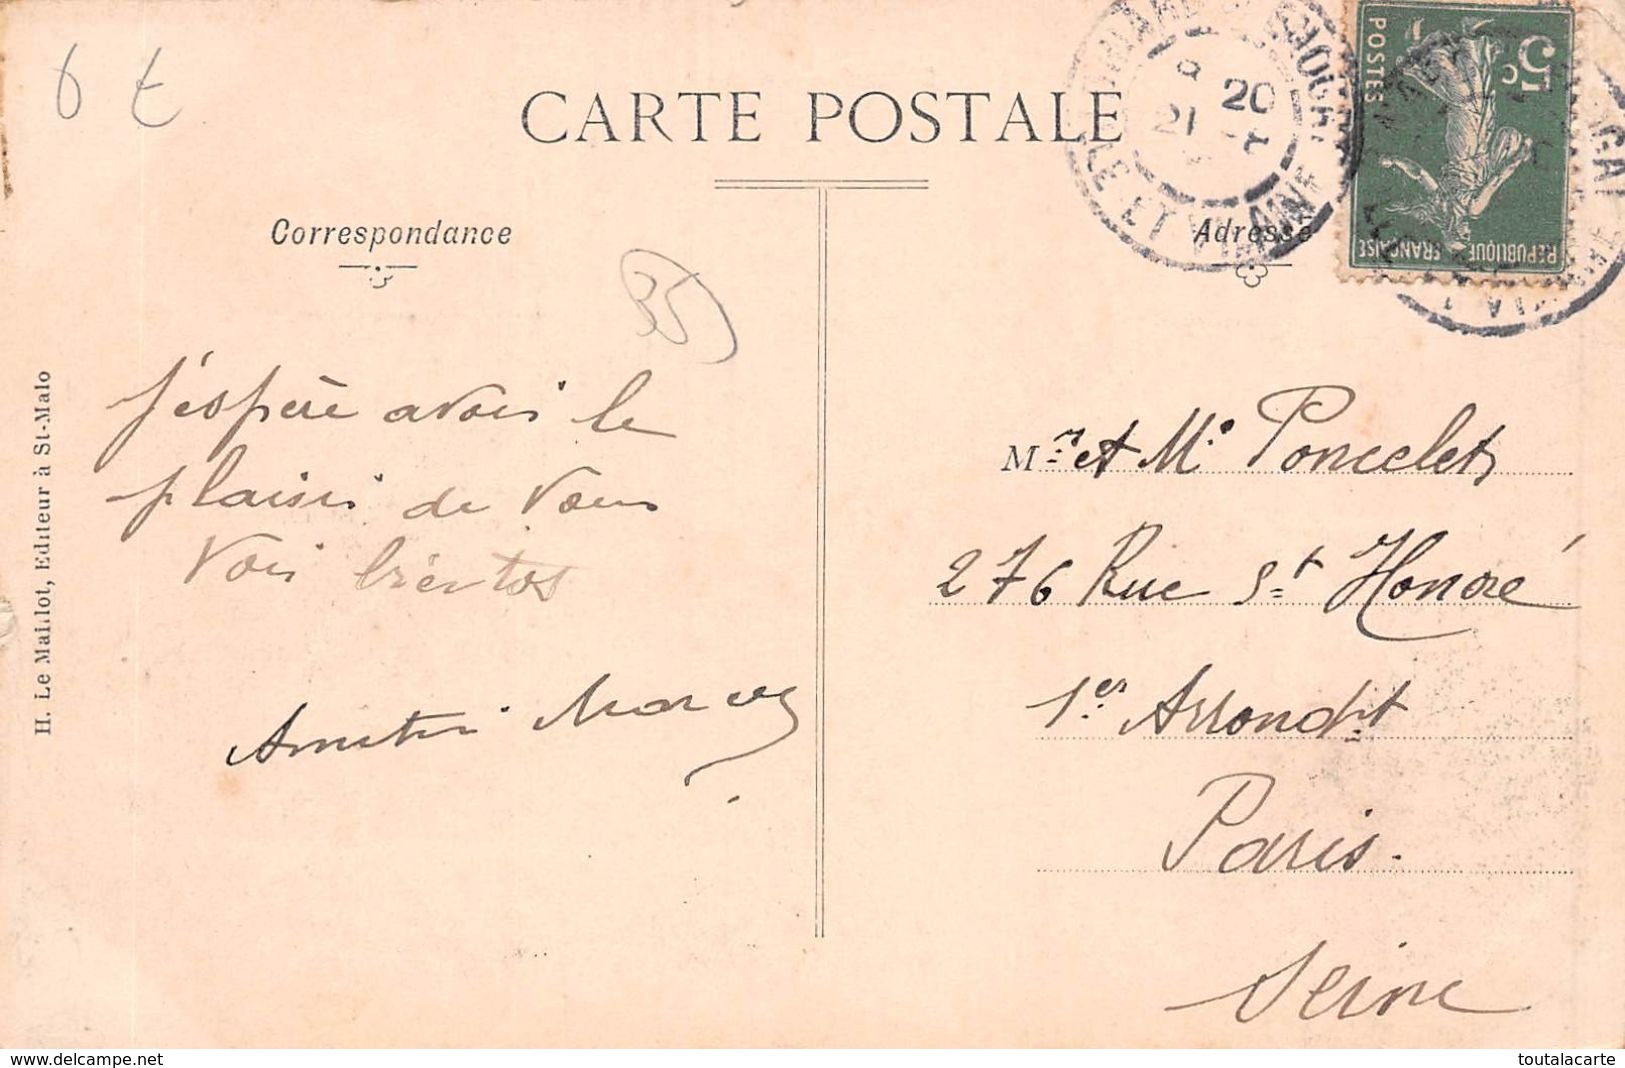 6 €
CARTE POSTALE
Correspondance
Adresse
35
20
21
ILLE ET VILAINE
POSTES
5c
REPUBLIQUE FRANÇAISE
H. Le Maillot, Editeur à St-Malo
J'espère avoir le
plaisir de vous
voir bientot
Mr et Me Poncelet
276 Rue St Honoré
1er Arrondit
Paris.
Seine
www.delcampe.net
toutalacarte